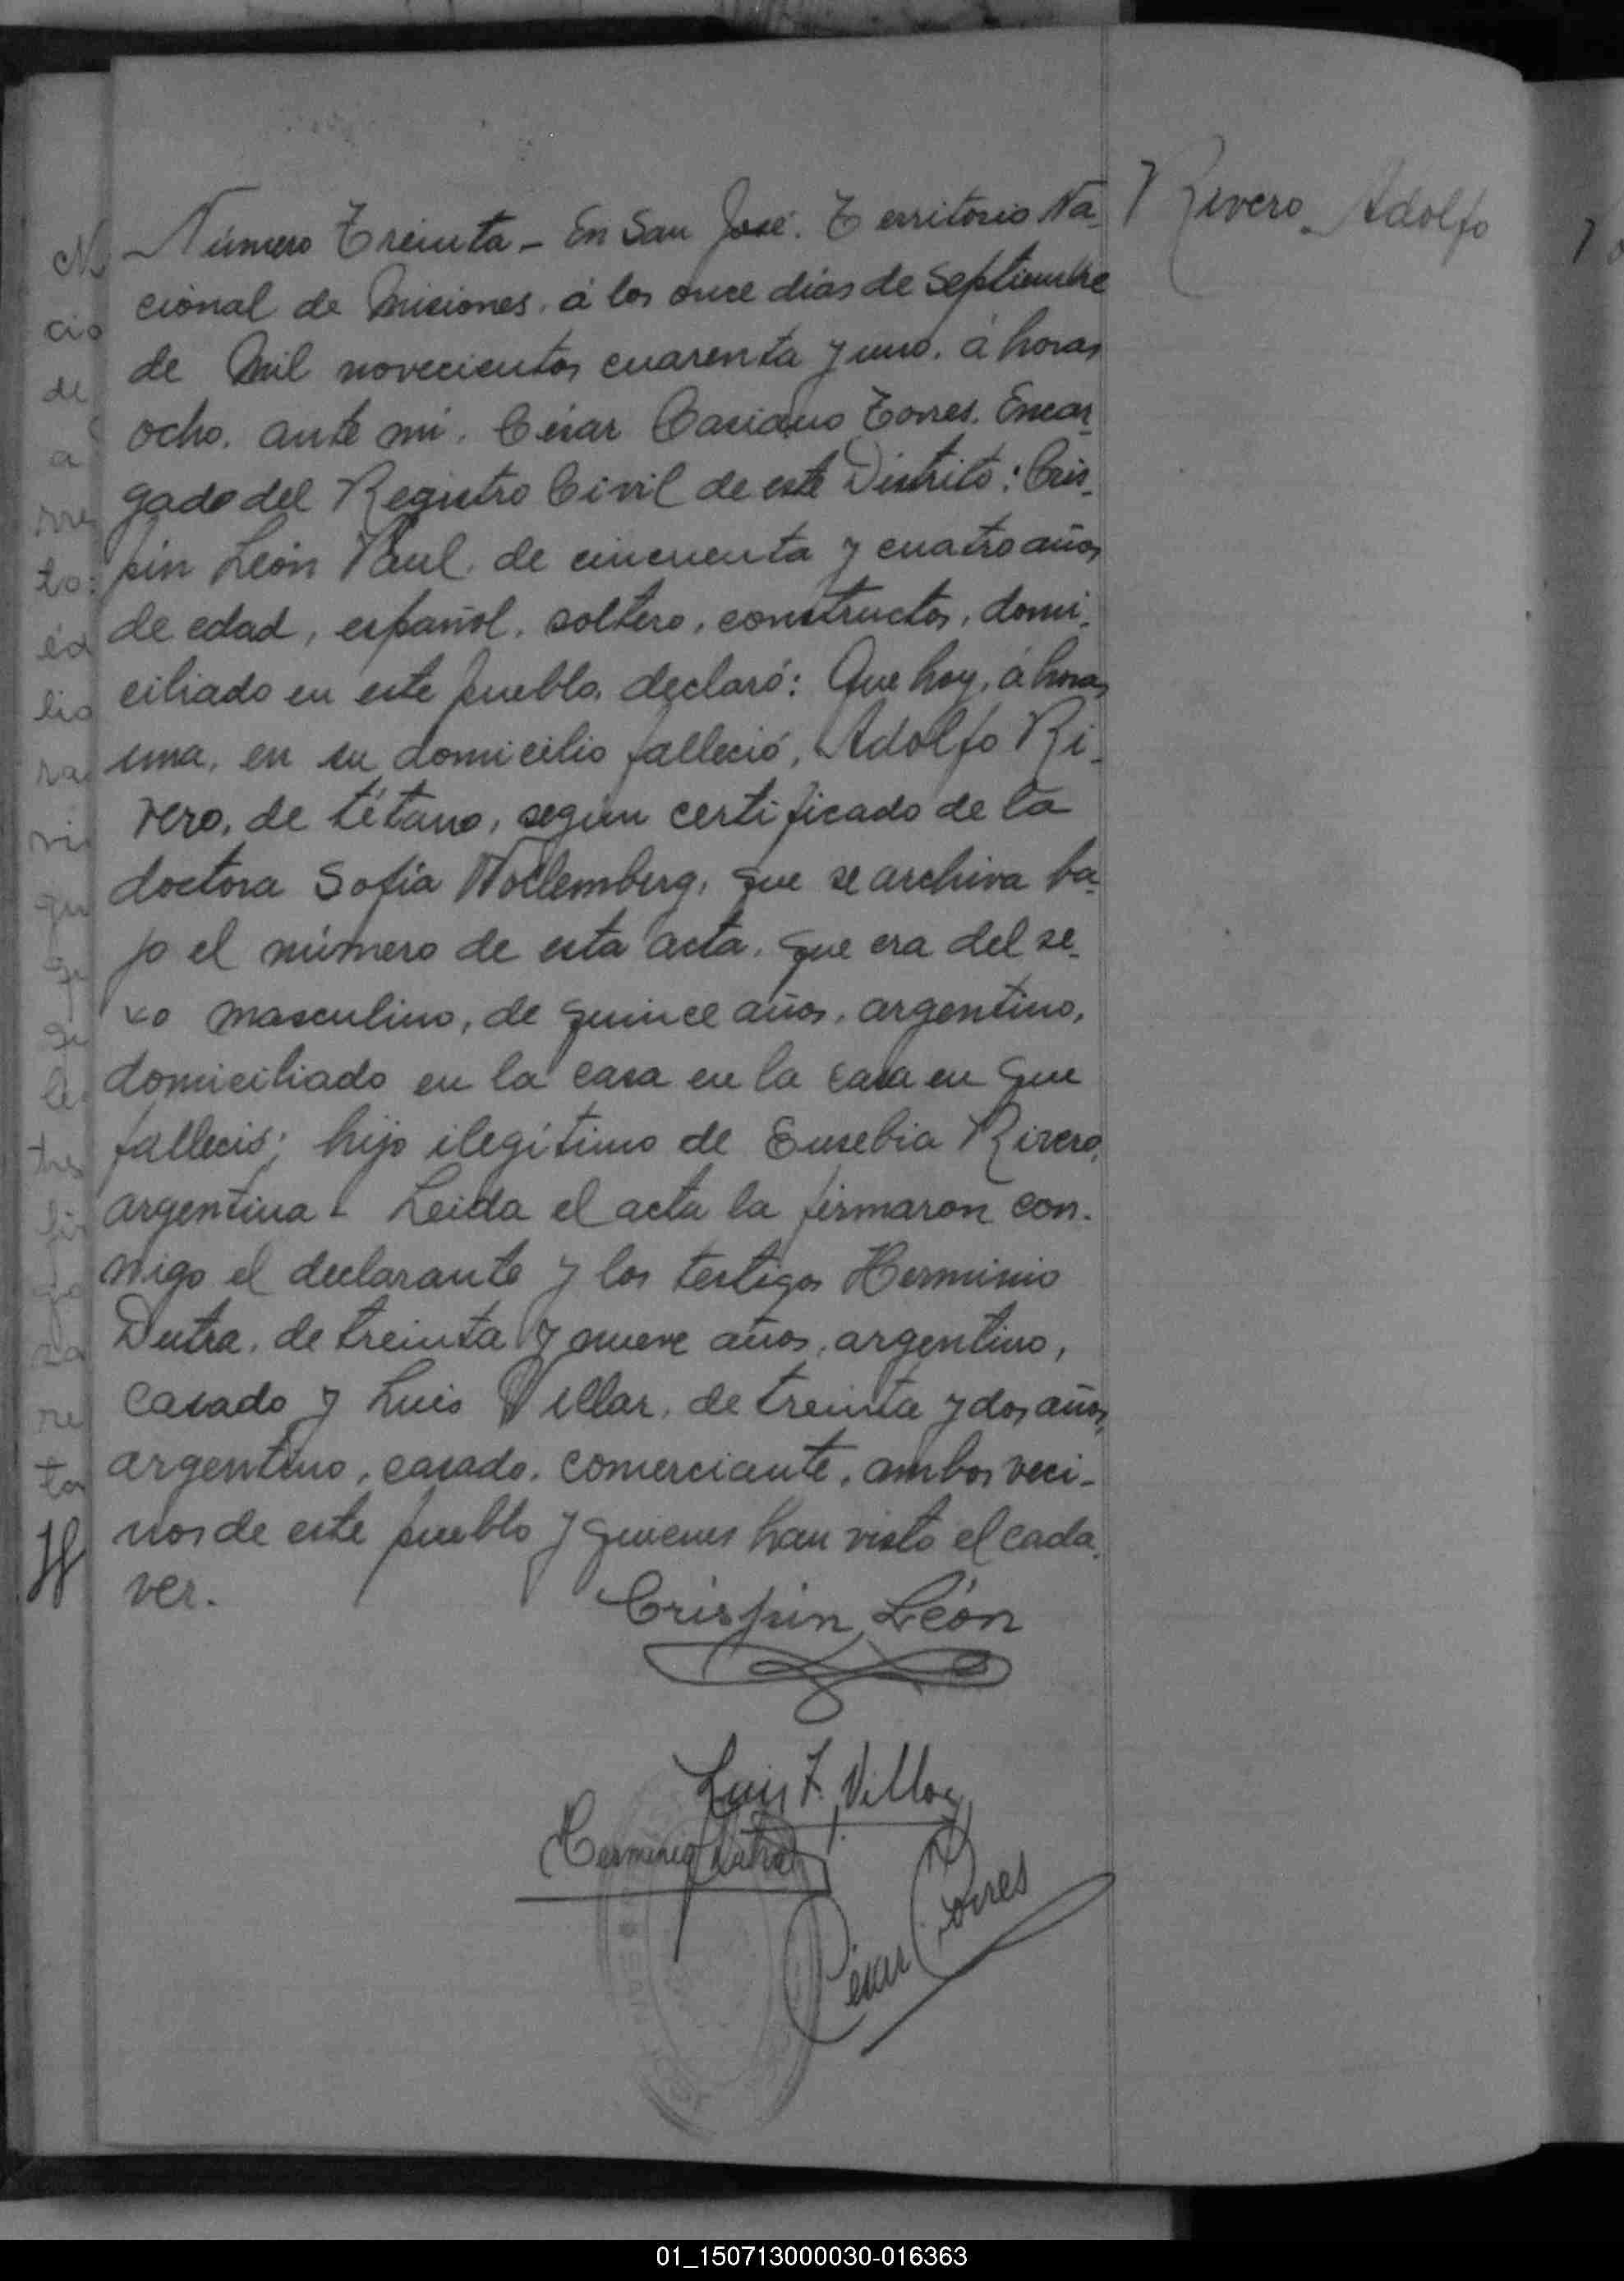 Número Treinta - En San José. Territorio Na-
cional de Misiones, á los once dias de Septiembre
de Mil novecientos cuarenta y uno, á horas
ocho, ante mi, César Casiano Torres, Encar-
gado del Registro Civil de este Distrito: Cris-
pin León Paul, de cincuenta y cuatro años
de edad, español, soltero, constructor, domi-
ciliado en este pueblo, declaró: Que hoy, á horas
una, en su domicilio falleció, Adolfo Ri-
vero, de tétano, según certificado de la
doctora Sofia Wollemberg, que se archiva ba-
jo el número de esta acta, que era del se-
xo masculino, de quince años, argentino,
domiciliado en la casa en la casa en que
falleció; hijo ilegítimo de Eusebia Rivero,
argentina - Leida el acta la firmaron con-
migo el declarante y los testigos Herminio
Dutra, de treinta y nueve años, argentino,
casado y Luis Villar, de treinta y dos años,
argentino, casado, comerciante, ambos veci-
nos de este pueblo y quienes han visto el cada-
ver.
Crispin León
Luis F. Villar
Herminio Dutra
César C. Torres
Rivero Adolfo
01_150713000030-016363